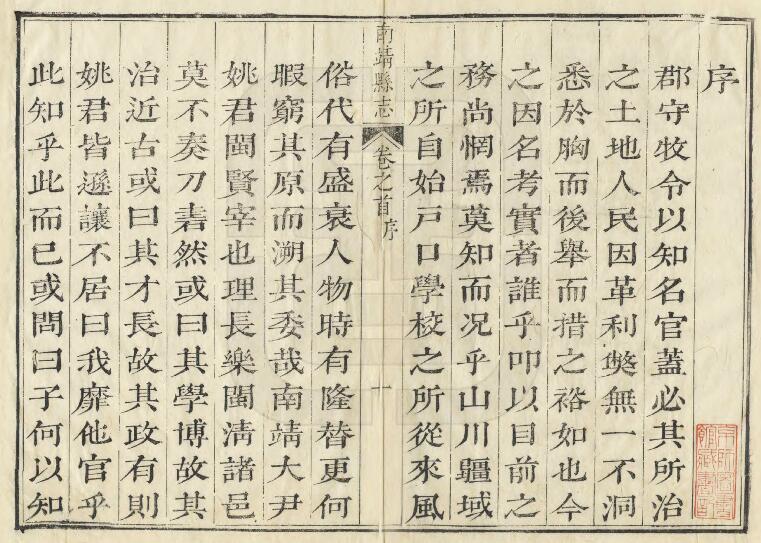 序
郡守牧令以知名官蓋必其所治
之土地人民因革利獘無一不洞
悉於胸而後舉而措之裕如也今
之因名考實者誰乎叩以目前之
務尚惘焉莫知而况乎山川疆域
之所自始戸口學校之所從來風
南靖縣志 卷之首 序 一
俗代有盛衰人物時有隆替更何
暇窮其原而溯其委哉南靖大尹
姚君閩賢宰也理長樂閩淸諸邑
莫不奏刀砉然或曰其學博故其
治近古或曰其才長故其政有則
姚君皆遜讓不居曰我靡他官乎
此知乎此而已或問曰子何以知